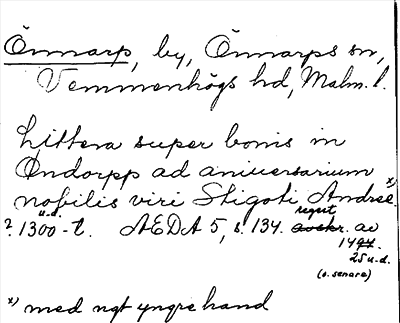 Önnarp, by, Önnarps sn,
Vemmenhögs hd, Malm. l.
Littera super bonis in
Ondorpp ad aniuersarium
nobilis viri Stigoti Andree x)
? 1300-t. u.d. ÆDA 5, s. 134. avskr. regest av
1494.
25 u.d.
(o. senare)
x) med ngt yngre hand